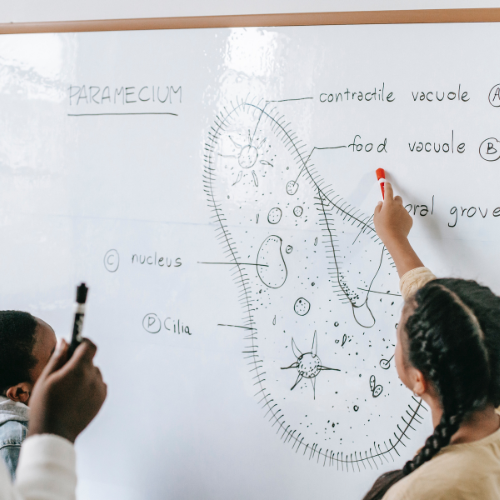 PARAMECIUM
contractile vacuole A
food vacuole B
oral grove
C nucleus
D Cilia